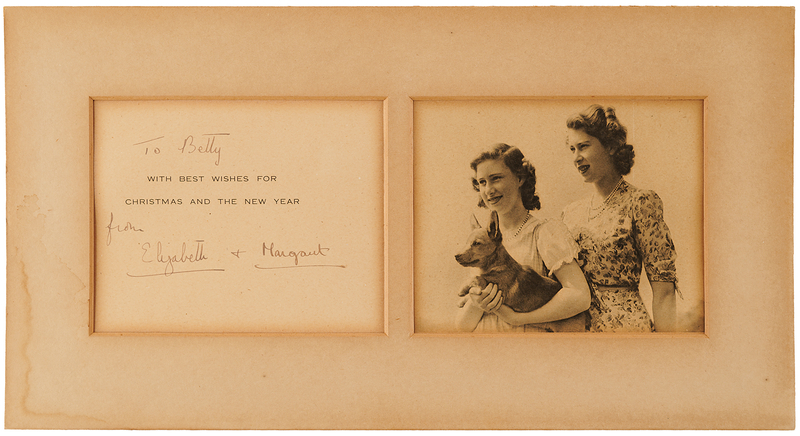 To Betty
WITH BEST WISHES FOR
CHRISTMAS AND THE NEW YEAR
from
Elizabeth + Margaret